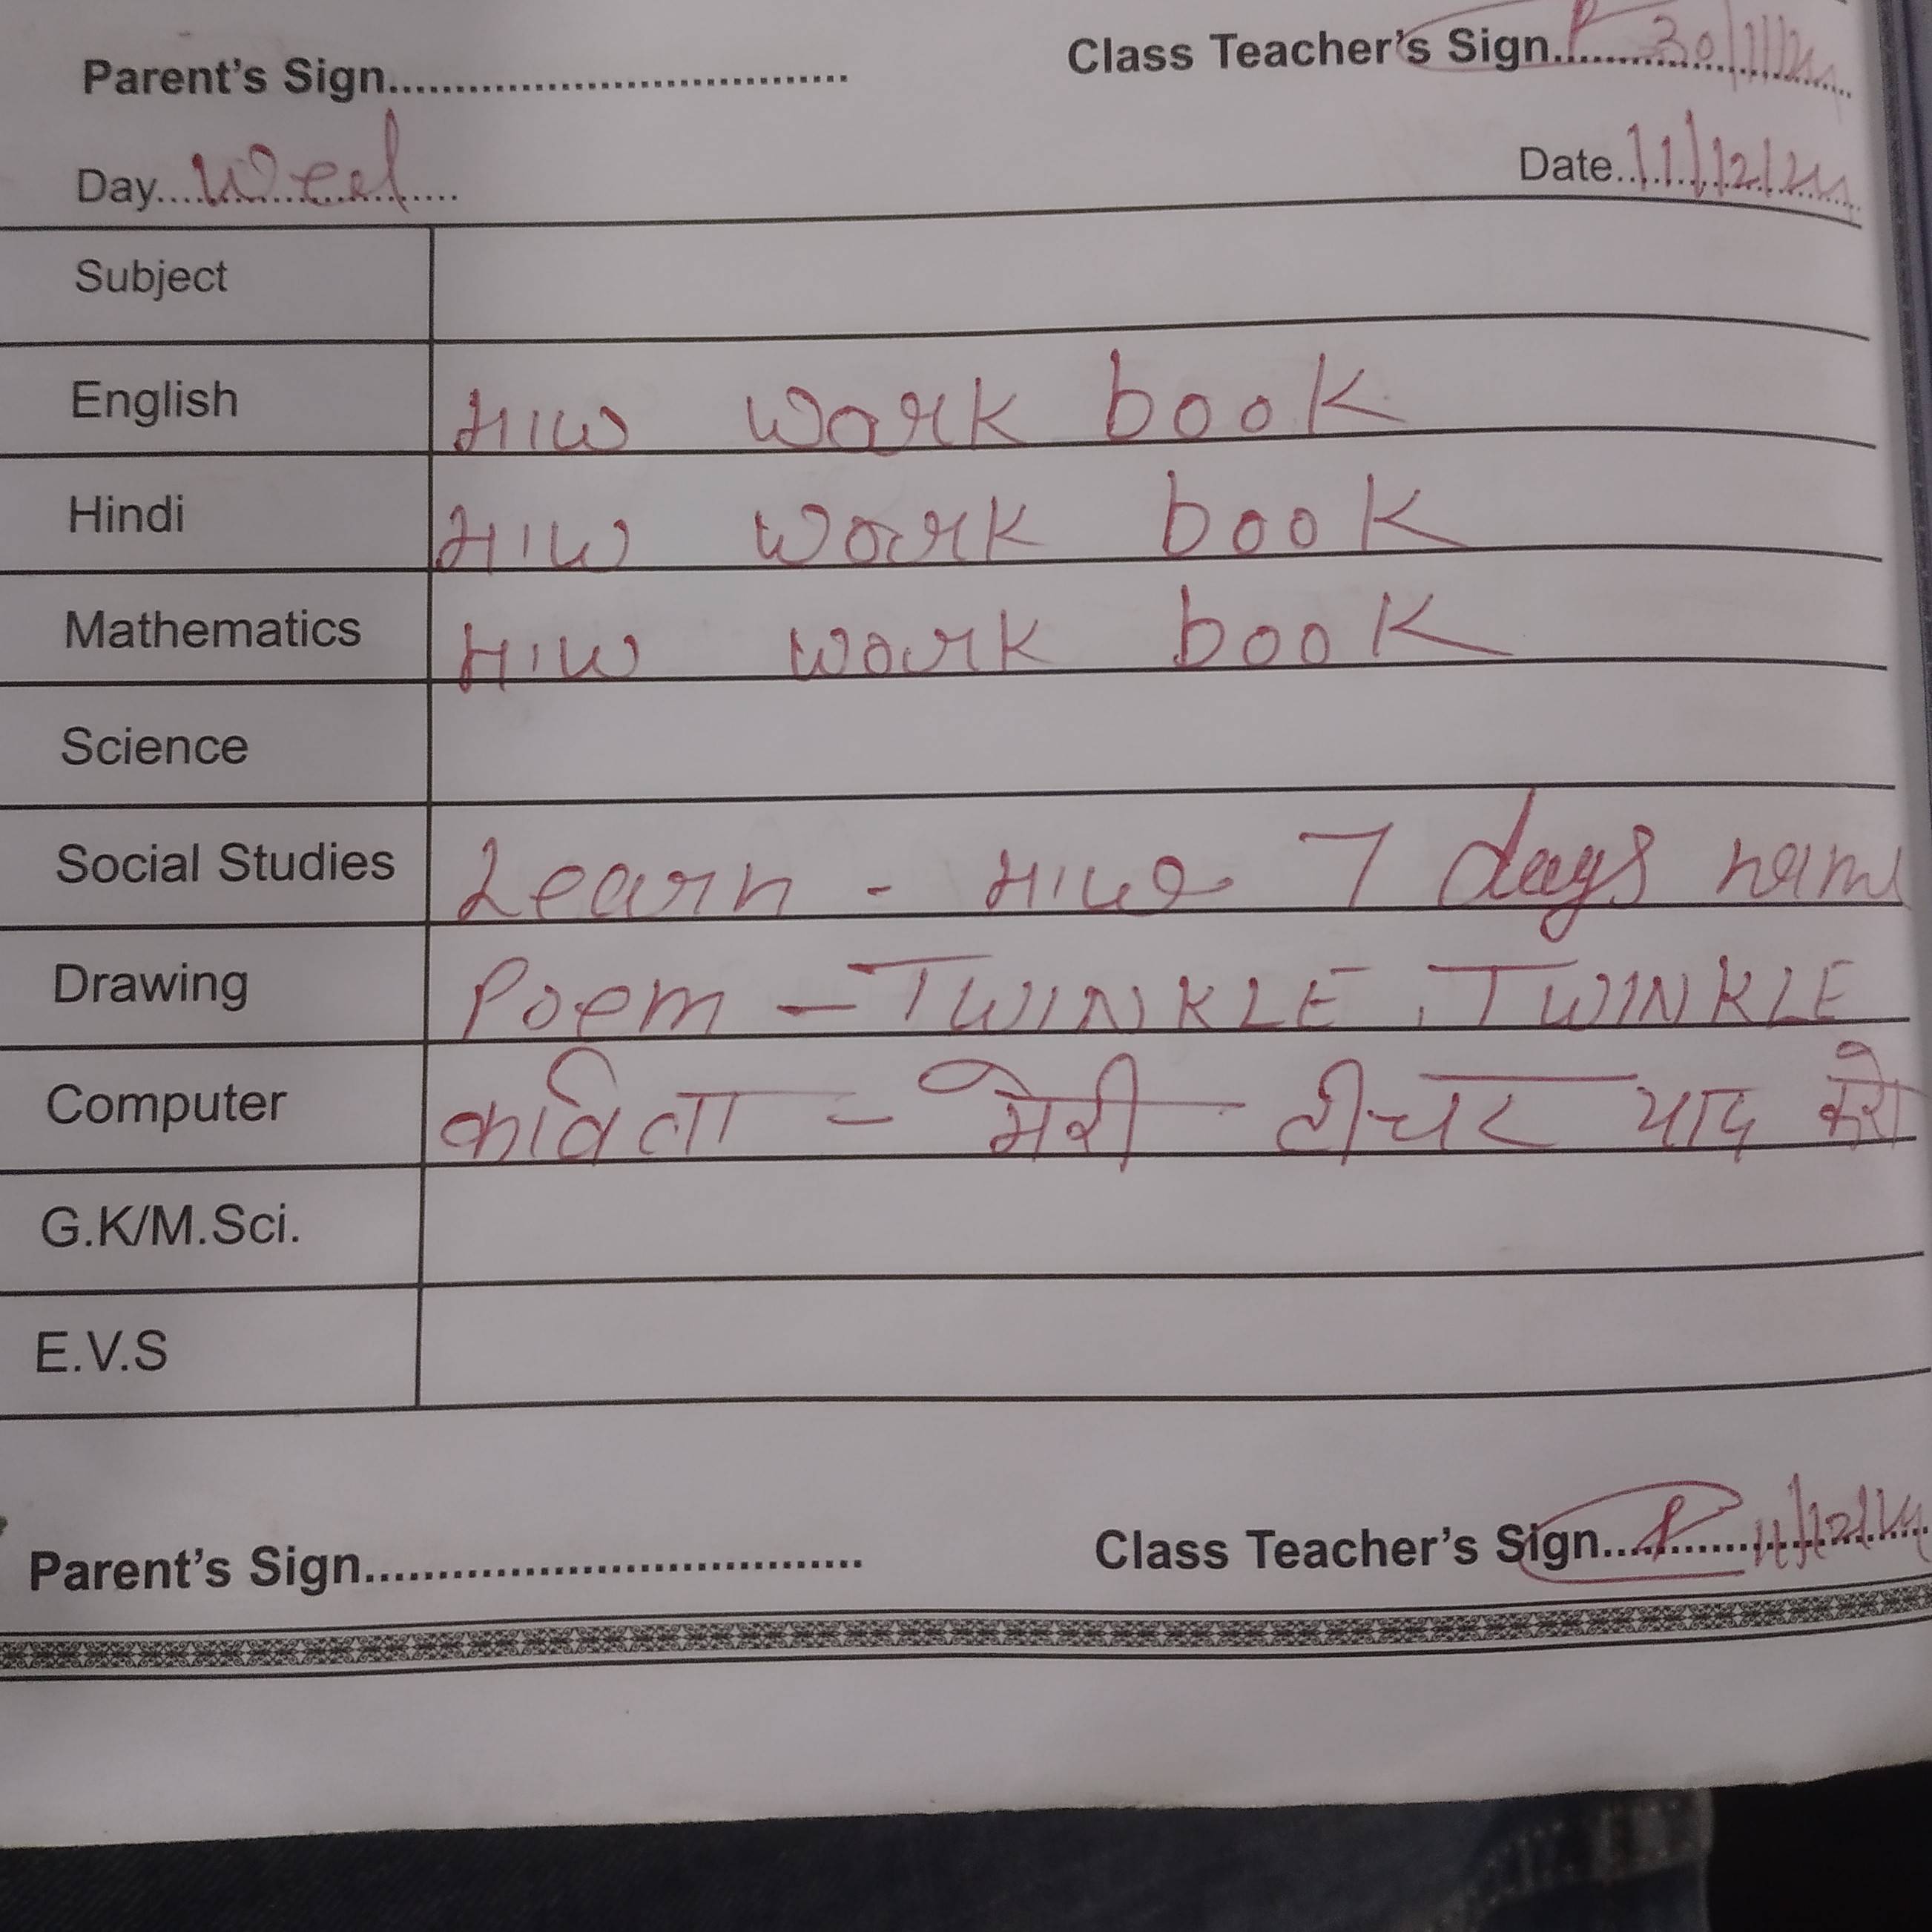 Parent's Sign................ Class Teacher's Sign........ 30/11/24
Day....Wed.... Date..11/12/24
Subject
English H/W work book
Hindi H/W work book
Mathematics H/W work book
Science
Social Studies Learn - 7 days name
Drawing Poem - TWINKLE, TWINKLE
Computer कविता - मेरी टीचर याद करो
G.K/M.Sci.
E.V.S
Parent's Sign................ Class Teacher's Sign........ 11/12/24